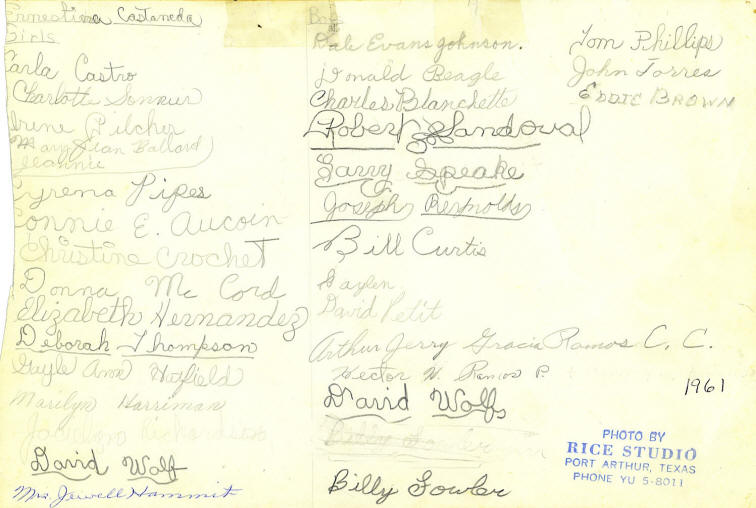 Ernestina Castaneda
Girls
Carla Castro
Charlotte Sonnier
Irene Pilcher
Mary Jean Ballard
Jeannie
Cyrena Pipes
Connie E. Aucoin
Christine Crochet
Donna Mc Cord
Elizabeth Hernandez
Deborah Thompson
Gayle Ann Hatfield
Marilyn Harriman
Jacelyn Richardson
David Wolf
Mrs. Jewell Hammit
Boys
Dale Evans Johnson.
Donald Beagle
Charles Blanchette
Robert Sandoval
Larry Speake
Joseph Reynolds
Bill Curtis
Gaylen
David Petit
Arthur Jerry Gracia Ramos C. C.
Hector H. Ramos P.
David Wolf
Billy Fowler
Billy Fowler
Tom Phillips
John Torres
EDDIE BROWN
1961
PHOTO BY
RICE STUDIO
PORT ARTHUR, TEXAS
PHONE YU 5-8011